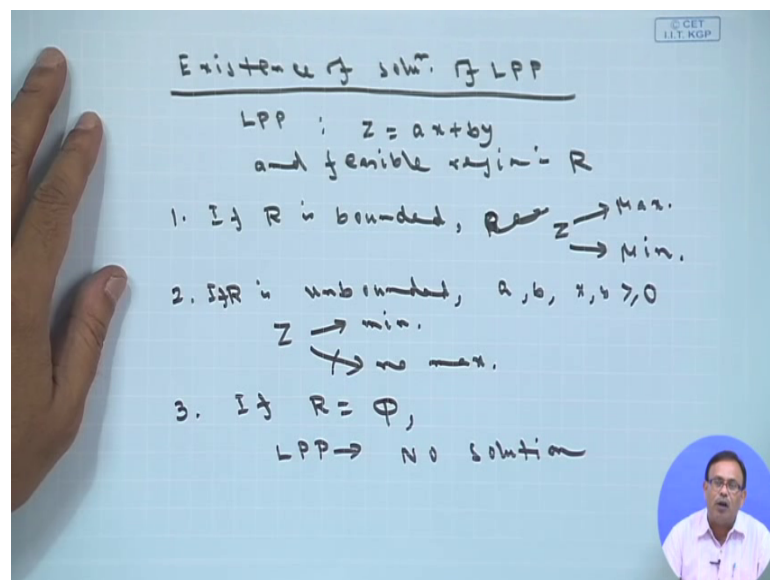 © CET
I.I.T. KGP
Existence of soluⁿ. of LPP
LPP : Z = ax+by
and feasible region - R
1. If R is bounded, Z → Max.
→ Min.
2. If R is unbounded, a, b, x, y ≥ 0
Z → min.
→ no max.
3. If R = Φ,
LPP → NO solution